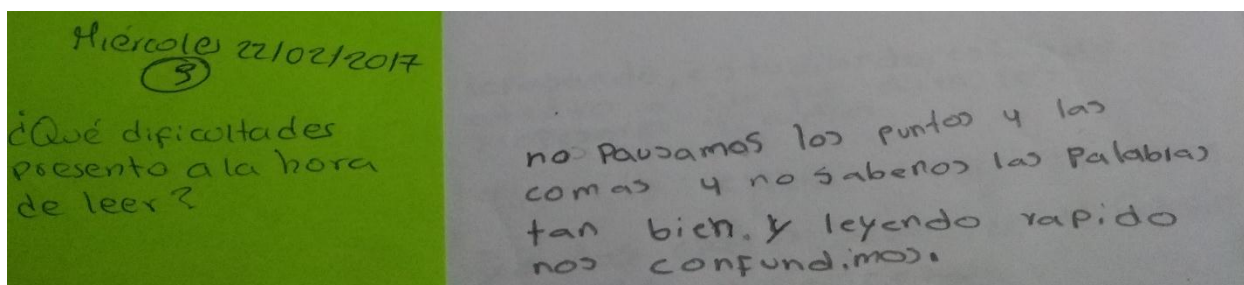 Miércoles 22/02/2017
3
¿Qué dificultades
presento a la hora
de leer?
no pausamos los puntos y las
comas y no sabenos las palabras
tan bien. y leyendo rapido
nos confundimos.